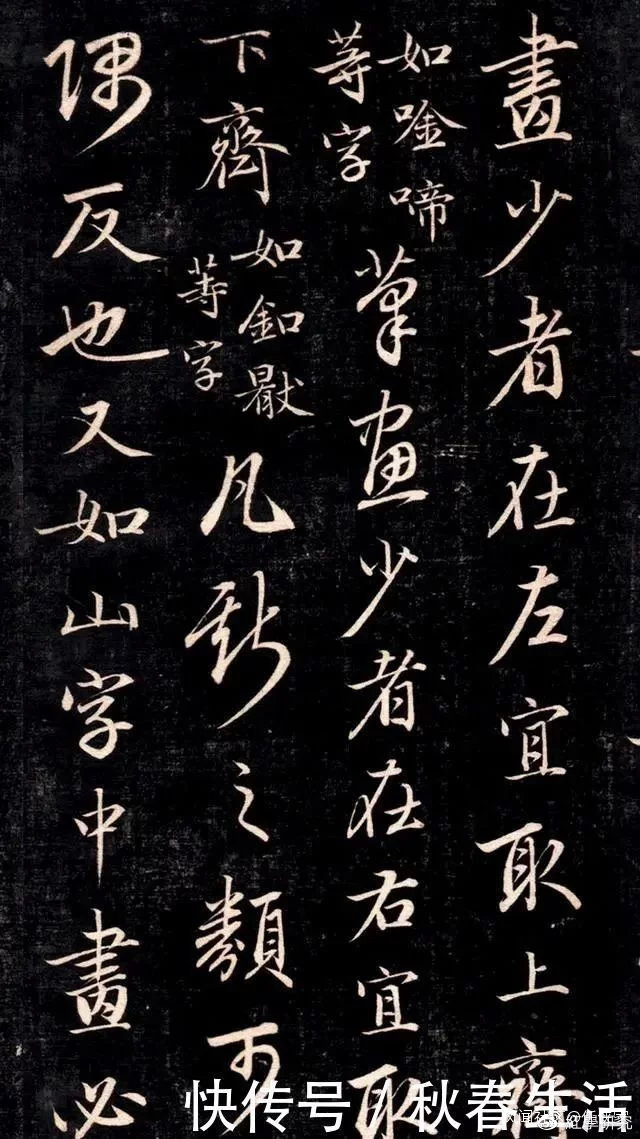 畫少者在左宜取上齊
如唫啼
等字
筆畫少者在右宜取
下齊
如釦
等字
凡斯之類可
隅反也又如山字中畫必
快传号 / 秋春生活